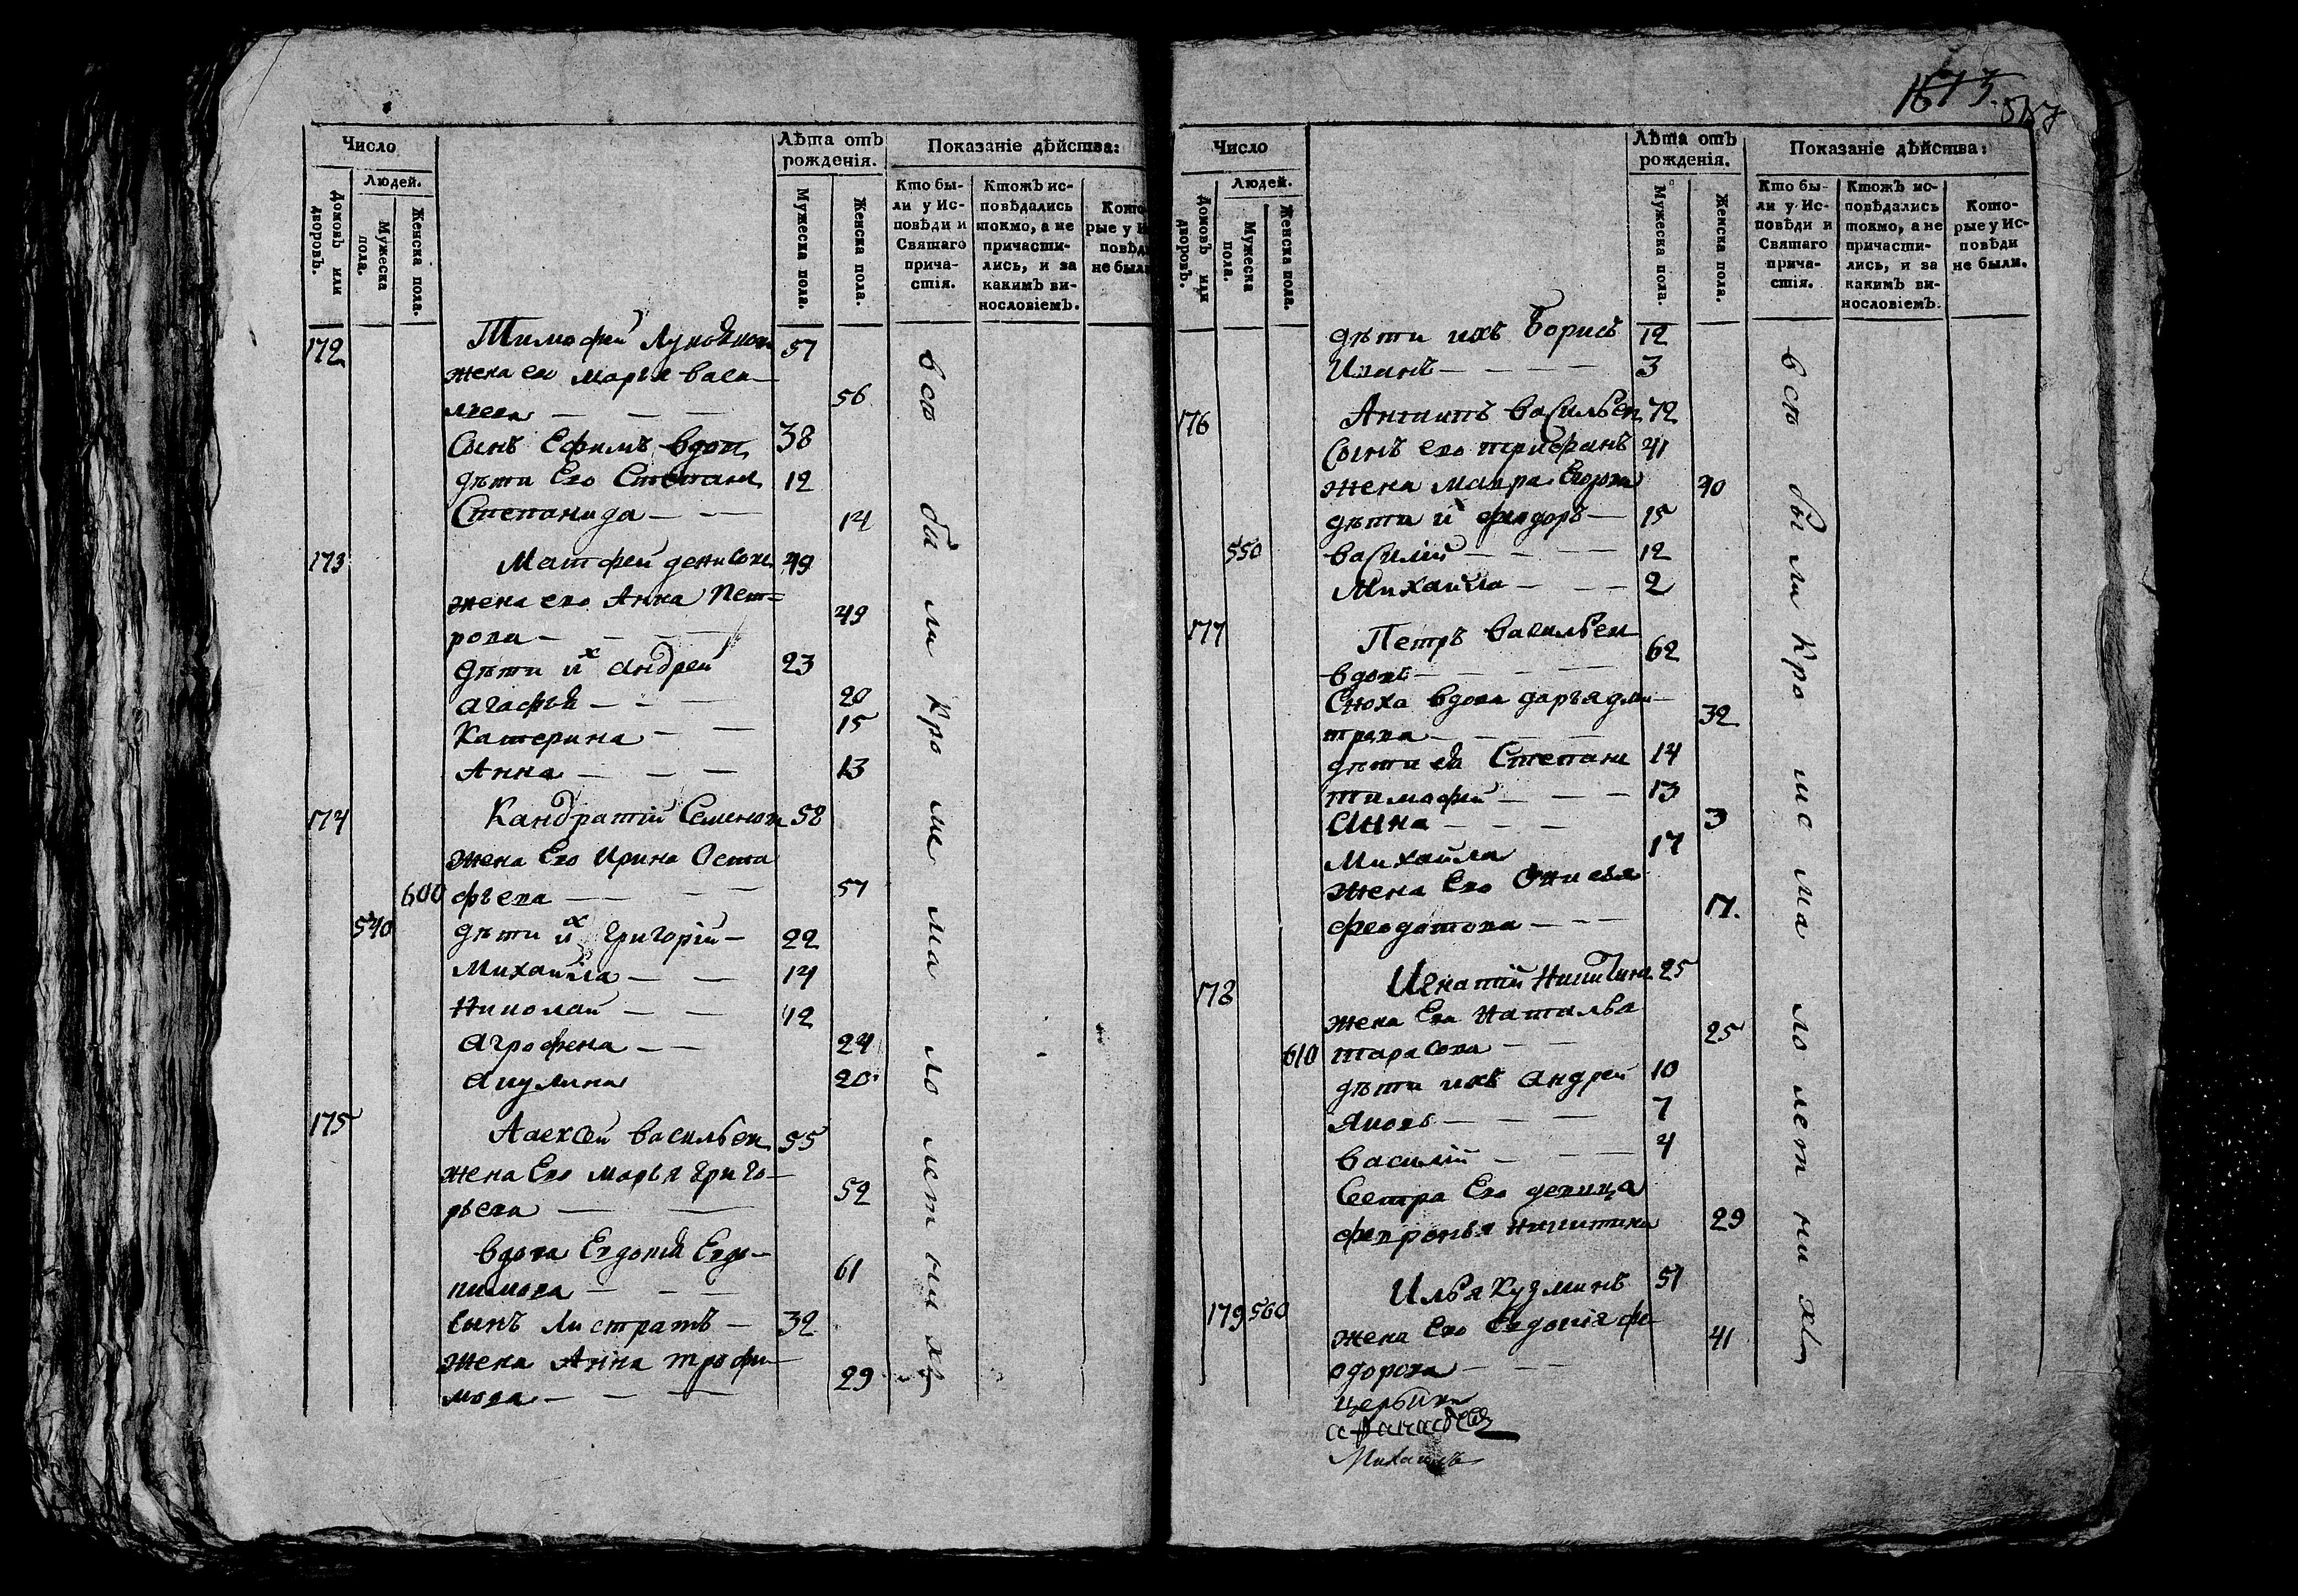 Число
Людей.
Домовъ или дворовъ.
Мужеска пола.
Женска пола.
Лѣта отъ рожденія.
Мужеска пола.
Женска пола.
Показаніе дѣйства:
Кто были у Исповѣди и Святаго причастія.
Ктожъ исповѣдались токмо, а не причастились, и за какимъ винословіемъ.
Кото
рые у И
повѣд
не был
172 Тимофей 57
жена ея Марья васи-
льева — — — 56
Сынъ Ефимъ вдов 38
дѣти Его Степанъ 12
Степанида — — — 14
173 Матфей денисовъ 49
жена его Анна Пет-
рова — — — 49
дѣти их андрей 23
агафья — — — 20
Катерина — — 15
Анна — — — 13
174 Кандратій Семеновъ 58
жена Его Ирина Оста
600 фьева — — — 57
540 дѣти их григорій — 22
Михайла — — 14
Николай — — 12
агрофена — — 24
акулина 20
175 Алексей васильевъ 55
жена Его марья григо-
рьева — — 52
вдова Евдокія Евдо-
кимова — — — 61
сынъ Листратъ — 32
жена Анна трофи-
мова — — — 29
всѣ были кромѣ малолетнихъ
1673.
Число
Людей.
Домовъ или дворовъ.
Мужеска пола.
Женска пола.
Лѣта отъ рожденія.
Мужеска пола.
Женска пола.
Показаніе дѣйства:
Кто были у Исповѣди и Святаго причастія.
Ктожъ исповѣдались токмо, а не причастились, и за какимъ винословіемъ.
Которые у Исповѣди не были.
дѣти ихъ Борисъ 12
Иванъ — — — — 3
176 Антипъ васильевъ 72
Сынъ его трифанъ 41
жена мавра Егорова 40
дѣти их фиодоръ — 15
550 василій — — — 12
Михайла — — — 2
177 Петръ васильевъ
вдовъ — — — — 62
Сноха вдова дарья дми-
трева — — — 32
дѣти ея Степанъ 14
тимофей — — — 13
анна — — — 3
Михайла 17
жена Его Онисья
феодотова — — — 17.
178 Игнатій Никитинъ 25
жена Его наталья
610 тарасова — — 25
дѣти ихъ андрей 10
яковъ — — — 7
василій — — — 4
Сестра Его девица
февронья никитина 29
Илья кузминъ 51
179 560
жена Его Евдокія фе-
одорова — — — 41
всѣ были кромѣ малолетнихъ
церькви
Михаилъ